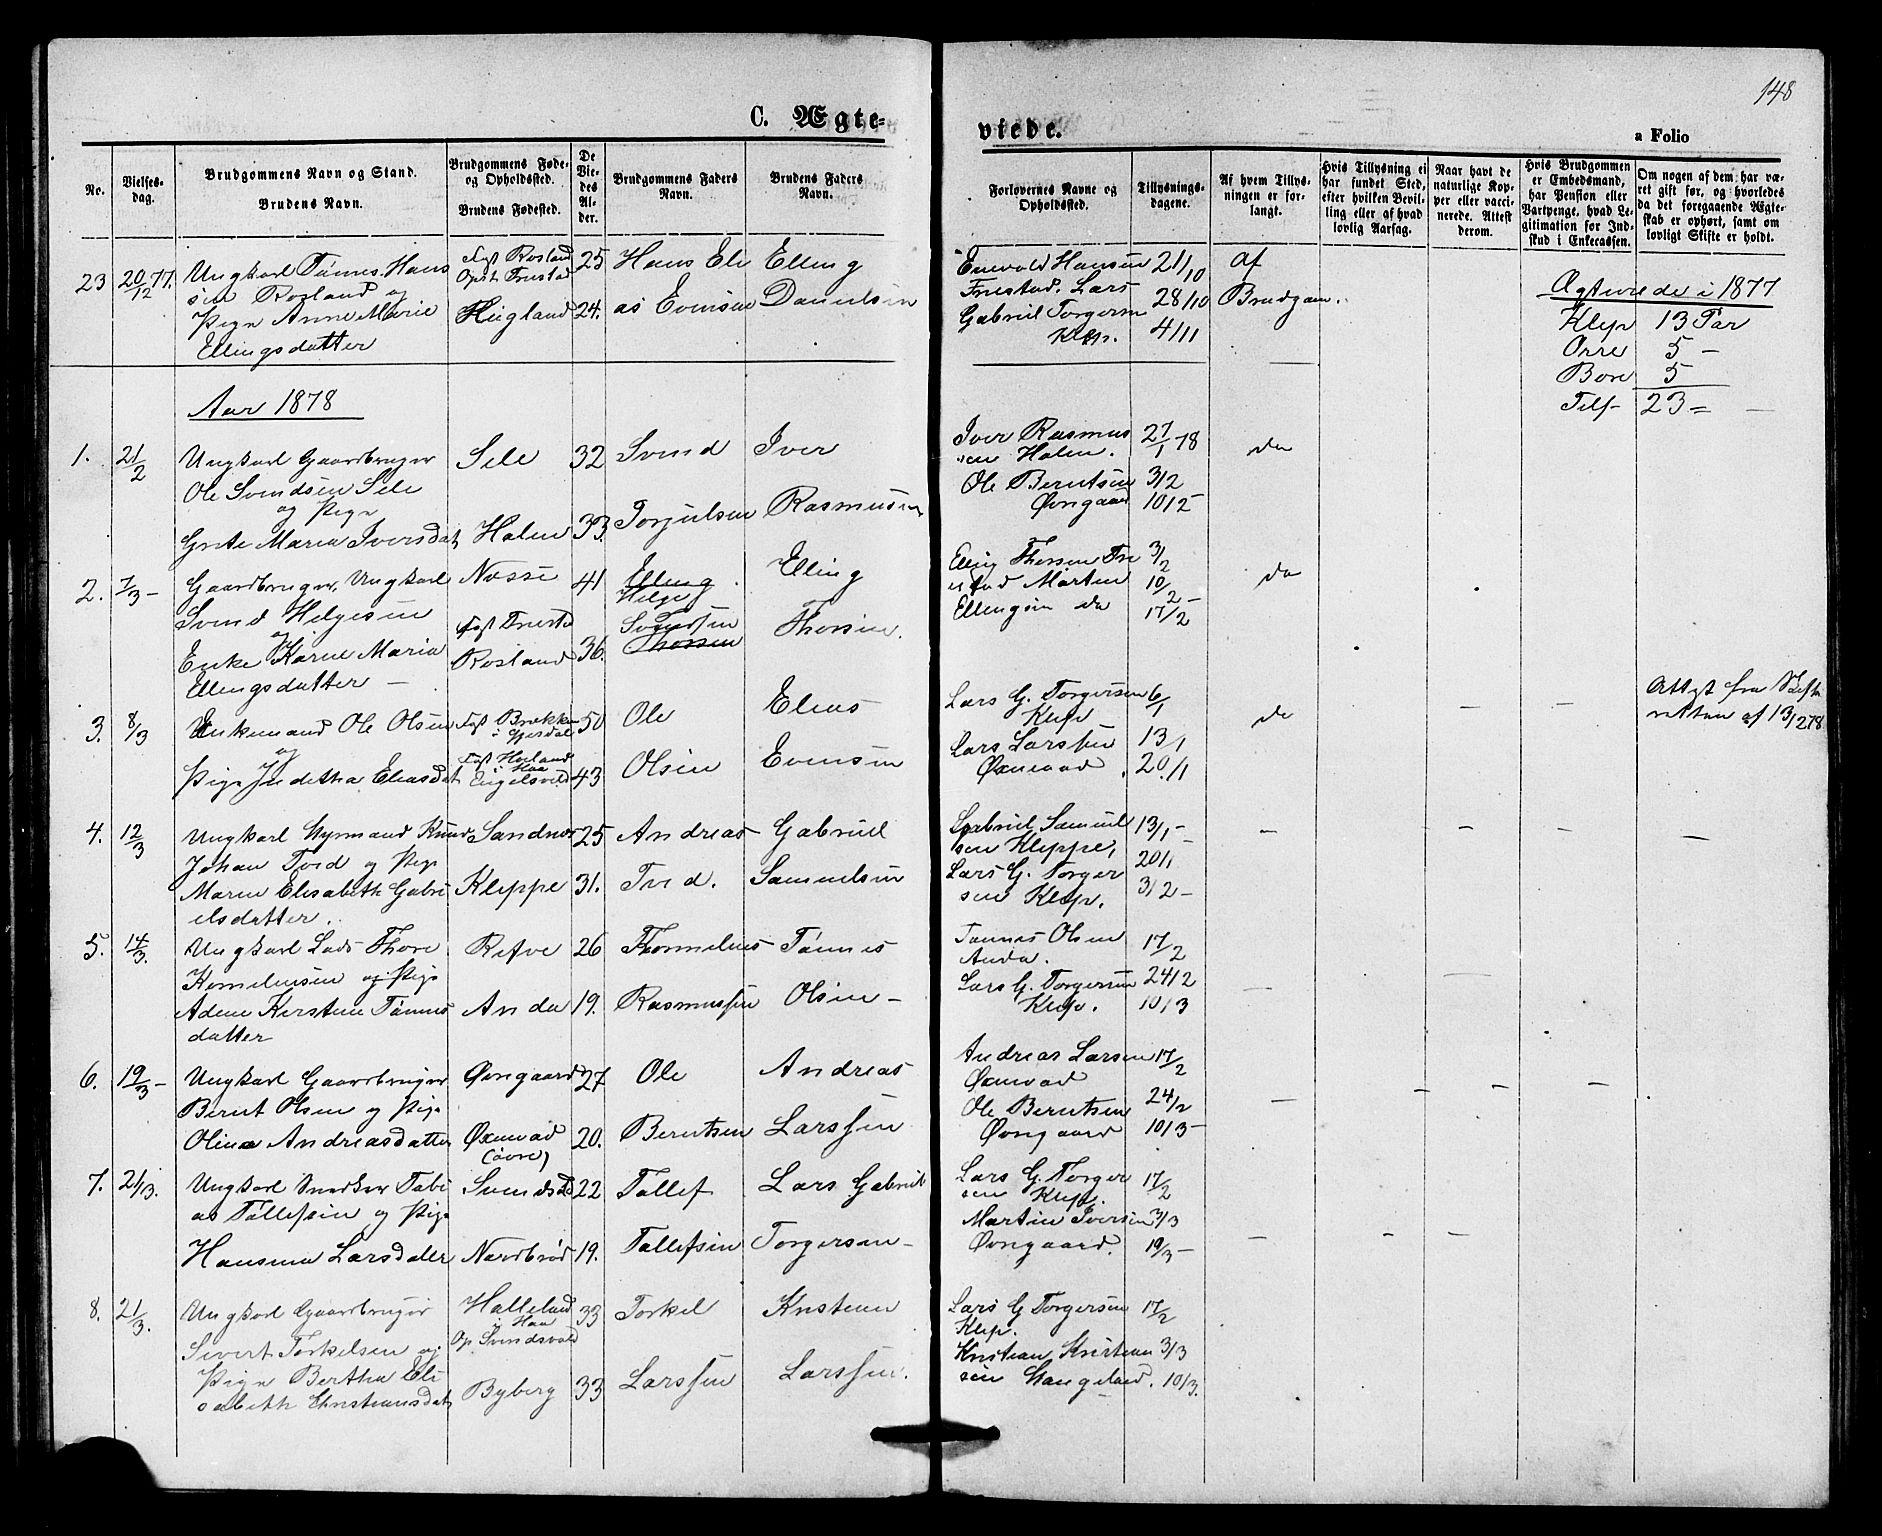 148
C. Ægte-
viede.
a Folio
No.
Vielses-
dag.
Brudgommens Navn og Stand.
Brudens Navn.
Brudgommens Føde-
og Opholdssted.
Brudens Fødested.
De
Vie-
des
Al-
der.
Brudgommens Faders
Navn.
Brudens Faders
Navn.
Forlovernes Navne og
Opholdssted.
Tillysnings-
dagene.
Af hvem Tillys-
ningen er for-
langt.
Hvis Tillysning ei
har fundet Sted,
efter hvilken Bevil-
ling eller af hvad
lovlig Aarsag.
Naar havt de
naturlige Kop-
per eller vacci-
nerede. Attest
derom.
Hvis Brudgommen
er Embedsmand,
har Pension eller
Vartpenge, hvad Le-
gitimation for Ind-
skud i Enkecassen.
Om nogen af dem har væ-
ret gift før, og hvorledes
da det foregaaende Ægte-
skab er ophørt, samt om
lovligt Skifte er holdt.
23 20/12 77. Ungkarl Tønnes Hans
sen Rosland og
Pige Anne Marie
Ellingsdatter
Fgst Rosland
Opst Friestad
Hugland
25
24.
Hans Eli
as Evensen
Elling
Danielsen
Enevold Hansen
Friestad. Lars
Gabriel Torgersen
Klep.
21/10
28/10
4/11
af
Brudgom.
Ægteviede i 1877
Klep 13 Par
Orre 5 -
Bore 5
Tils- 23 =
Aar 1878
1. 21/2 Ungkarl Gaardbruger
Ole Svendsen Sele
og Pige
Grete Maria Iversdat
Sele
Halen
32
33.
Svend
Torjulsen
Iver
Rasmusen
Iver Rasmus
sen Halen.
Ole Berntsen
Øvngaard
27/1 78
3/2
10/2
da
2. 7/3 - Gaardbruger, Ungkarl
Svend Helgesen
og
Enke Karne Maria
Ellingsdatter -
Næsse
Fgst Friesta
Rosland
41
36.
Elling
Helge
Svendsen
Thorsen
Elling
Thorsen.
Elling Thorsen Frie
stad Morten
Ellingsen da
3/2
10/2 -
17/2
da
3. 8/3 Enkemand Ole Olsen
og
Pige Juditha Eliasdat
Fgst Brekke
i Gjesdal
Fgst Hoiland
i Haa
Engelsvold
50
43
Ole
Olsen
Elias
Evensen
Lars G. Torgersen
Klep
Lars Larssen
Øxnevad
6/1
13/1
20/1
da
Attest fra Skifte
retten af 13/2 78
4. 12/3 Ungkarl Styrmand Knud
Johan Tved og Pige
Maren Elisabeth Gabri
elsdatter.
Sandnes
Kleppe
25
31.
Andreas
Tved.
Gabriel
Samuelsen
Gabriel Samuel
sen Kleppe,
Lars G. Torger
sen Klep.
13/1 -
20/1
3/2 -
5. 14/3. Ungkarl Lods Thore
Kornelinsen og Pige
Adene Kirstene Tønnes
datter
Refve
Anda
26
19.
Thormelius
Rasmussen
Tønnes
Olsen -
Tønnes Olsen
Anda.
Lars G. Torgersen
Klep.
17/2
24/2
10/3
6. 19/3 - Ungkarl Gaardbruger
Bernt Olsen og Pige
Oline Andreasdatter
Øvngaard
Øxnevad
(øvre)
27
20.
Ole
Berntsen
Andreas
Larssen
Andreas Larsen
Øxnevad
Ole Berntsen
Øvngaard
17/2
24/2
10/3 -
7. 21/3. Ungkarl Snedker Tobi
as Tollefsen og Pige
Hansine Larsdatter
Svendsvold
Nordbrød
22
19.
Tollef
Tollefsen
Lars Gabriel
Torgersen -
Lars G. Torger
sen Klep.
Martin Iversen
Øvngaard.
17/2
3/3
19/3 -
8. 21/3. Ungkarl Gaardbruger
Sivert Torkelsen og
Pige Bertha Eli
sabeth Christiansdat
Halleland
i Haa
Op Svindsvold
Byberg
33
33
Torkel
Larssen
Kristian
Larssen.
Lars G Torgersen
Klep.
Kristian Kristian
sen Haugeland.
17/2
3/3
10/3.